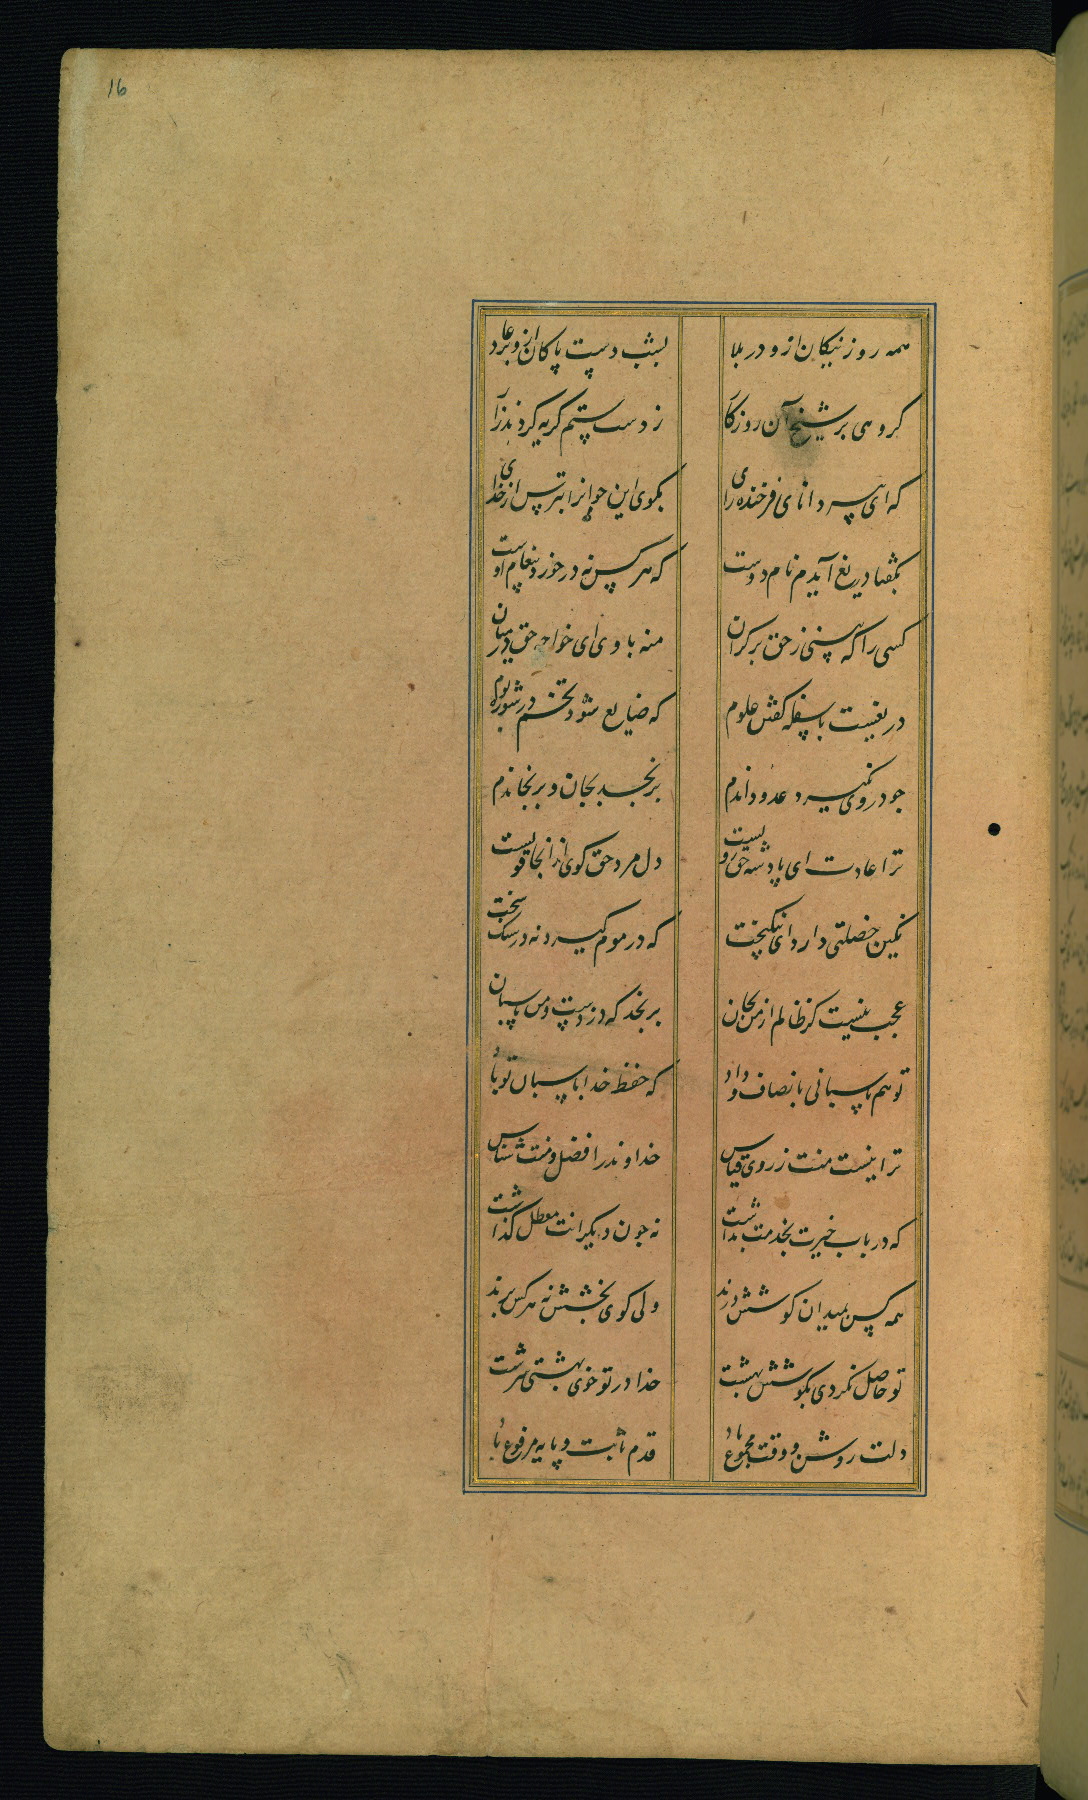 16
همه روز نیکان ازو در بلا بشب دست پاکان ازو بر دعا
کروهی بر شیخ آن روزکار ز دست ستم کریه کردند زار
که ای پیر دانای فرخنده رای بکوی این جوانرا بترس از خدای
بکفتا دریغ آیدم نام دوست که هر کس نه در خورد پیغام اوست
کسی را که بینی ز حق بر کران منه با وی ای خواجه حق در میان
دریغست با سفله کفتن علوم که ضایع شود تخم در شوره بوم
جو در وی نکیرد عدو داندم برنجد بجان و برنجاندم
ترا عادت ای پادشه حق رویست دل مرد حق کوی از انجا قویست
نکین خصلتی دارد ای نیکبخت که در موم کیرد نه در سنک سخت
عجب نیست کر ظالم از من بجان برنجد که دزدست و من پاسبان
تو هم پاسبانی بانصاف و داد که حفظ خدا پاسبان تو باد
ترا نیست منت ز روی قیاس خداوند را فضل و منت شناس
که در باب خیرت بخدمت بداشت نه جون دیکرانت معطل کذاشت
همه کس بمیدان کوشش درند ولی کوی بخشش نه هر کس برند
تو حاصل نکردی بکوشش بهشت خدا در تو خوی بهشتی سرشت
دلت روشن و وقت مجموع باد قدم ثابت و پایه مرفوع باد